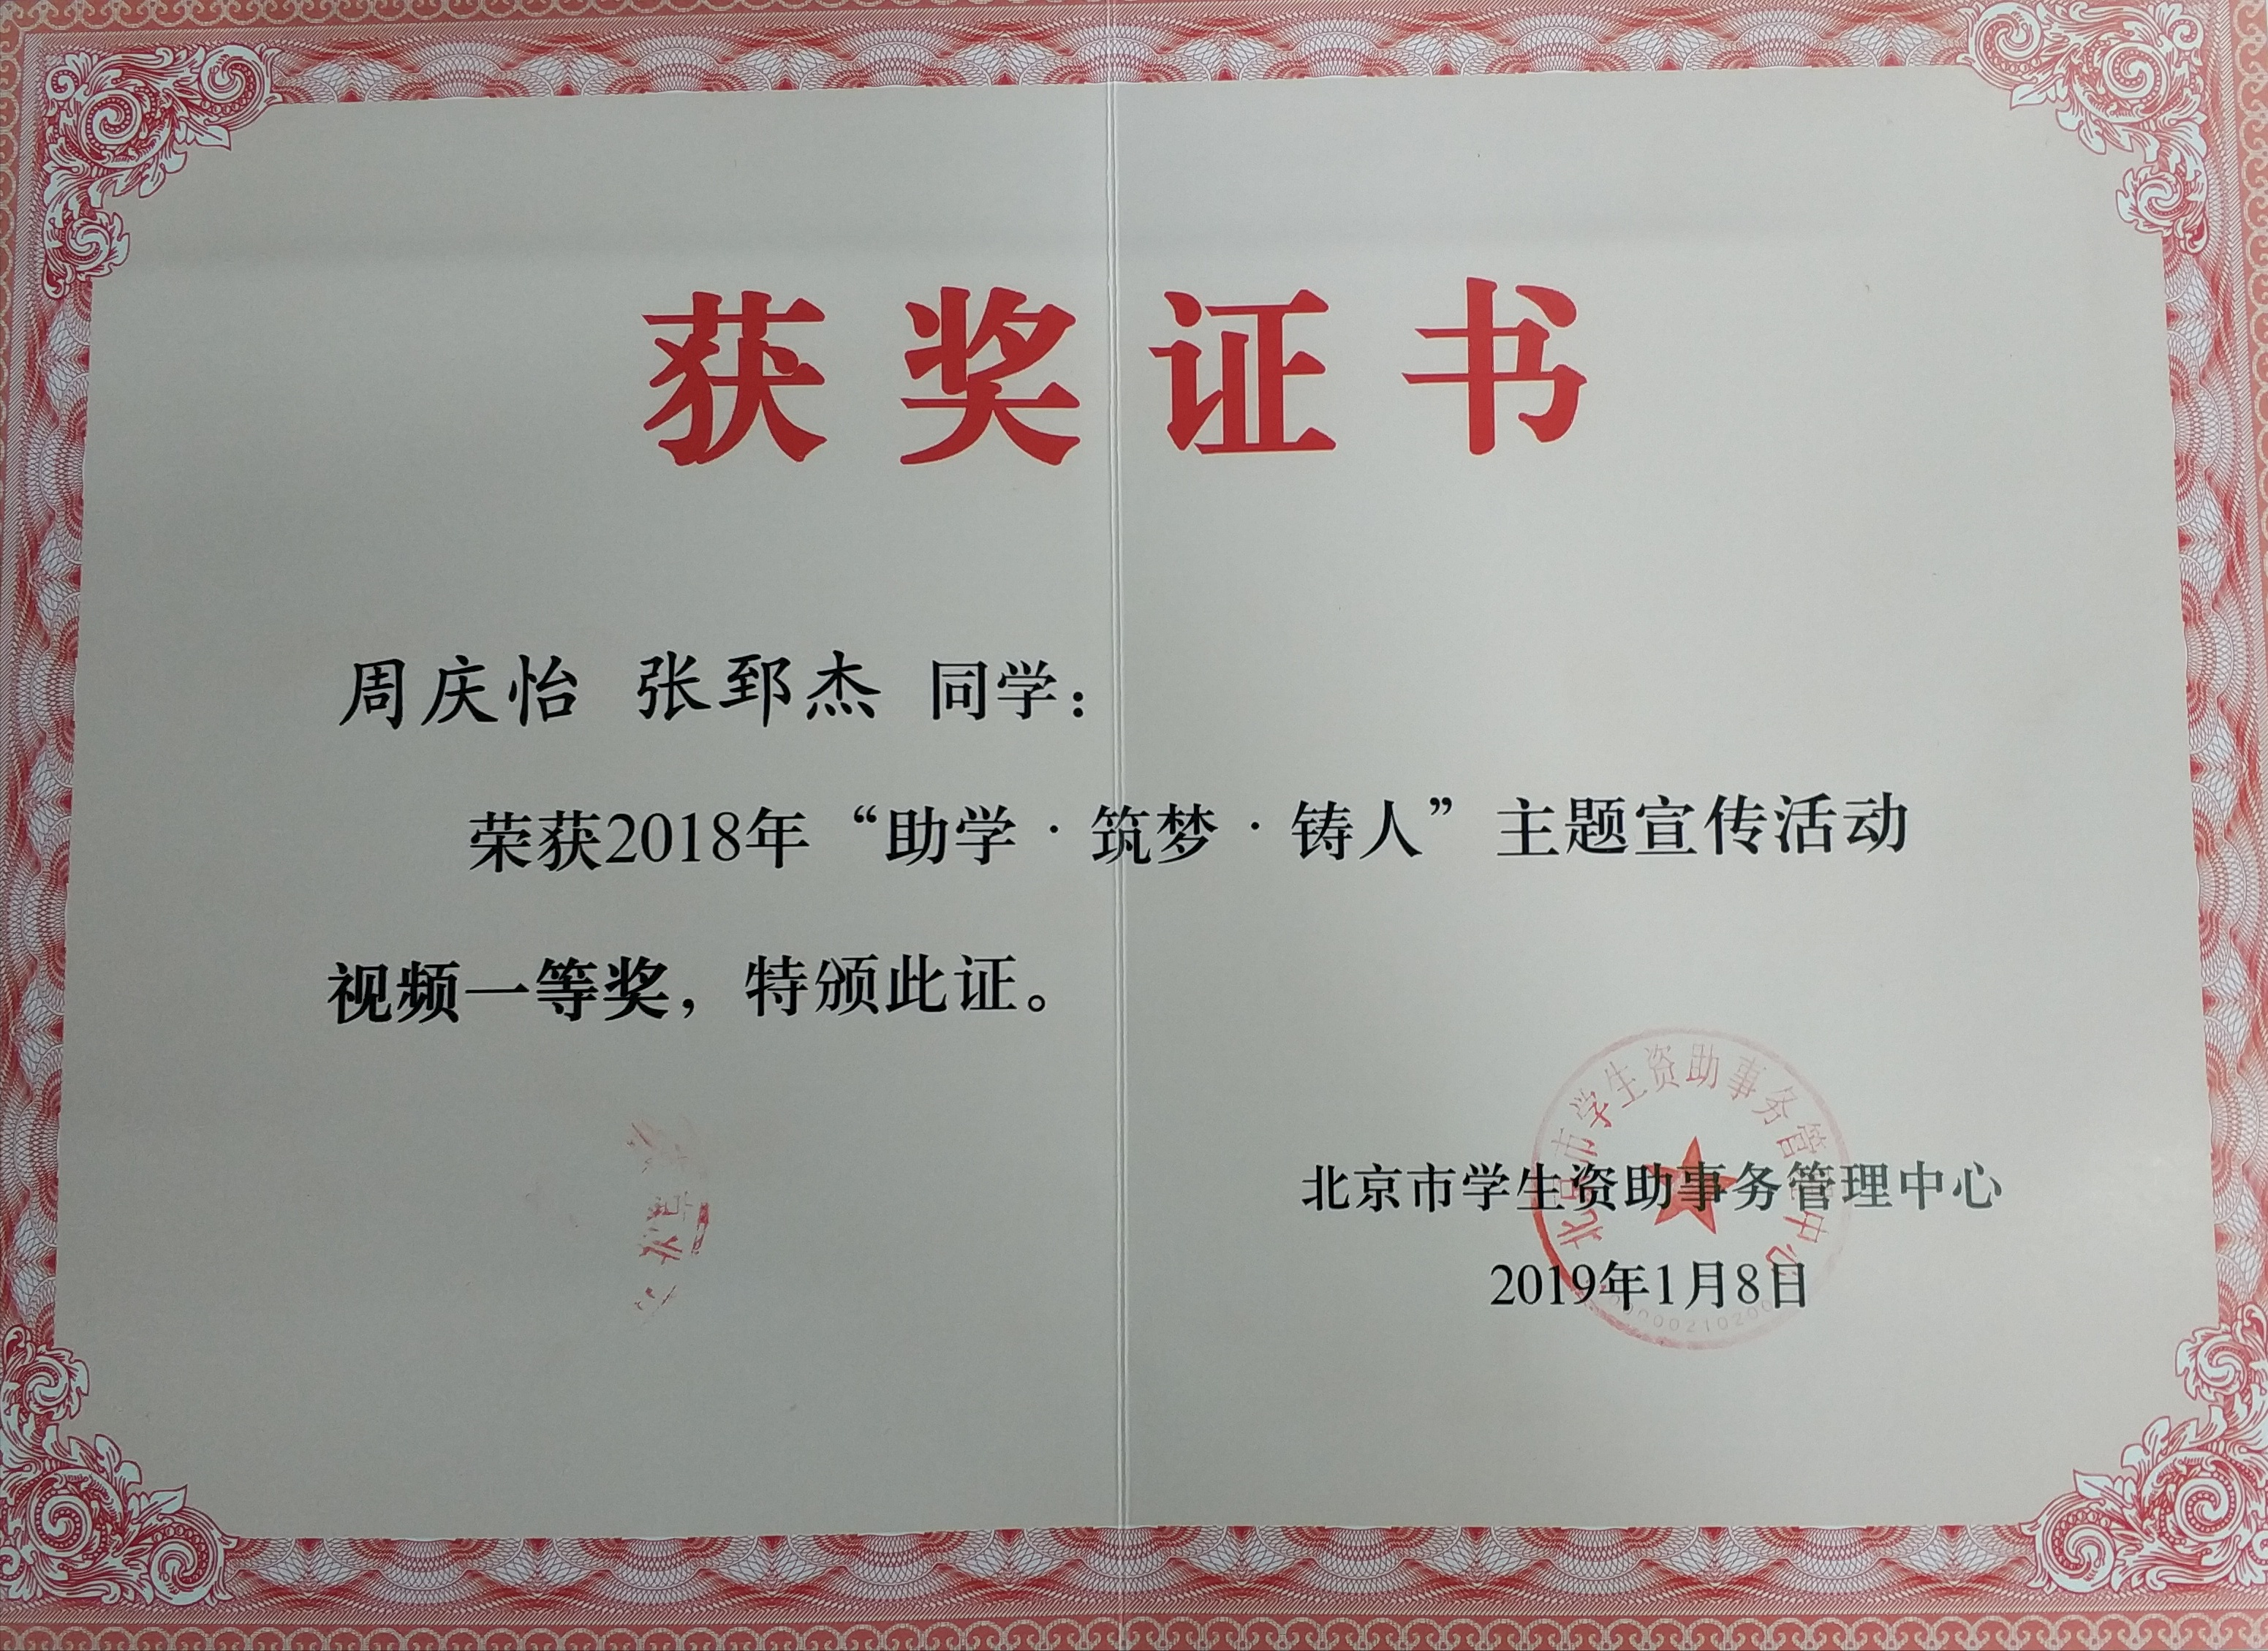 获奖证书
周庆怡 张郅杰 同学：
荣获2018年“助学·筑梦·铸人”主题宣传活动
视频一等奖，特颁此证。
北京市学生资助事务管理中心
北京市学生资助事务管理中心
2019年1月8日